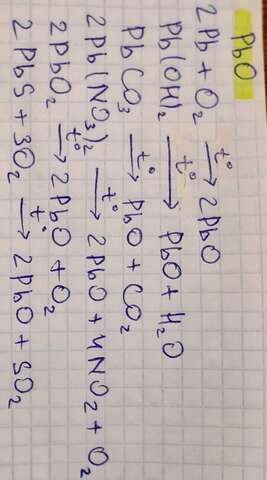 PbO
2Pb + O₂ —t°→ 2PbO
Pb(OH)₂ —t°→ PbO + H₂O
PbCO₃ —t°→ PbO + CO₂
2Pb(NO₃)₂ —t°→ 2PbO + 4NO₂ + O₂
2PbO₂ —t°→ 2PbO + O₂
2PbS + 3O₂ —t°→ 2PbO + SO₂